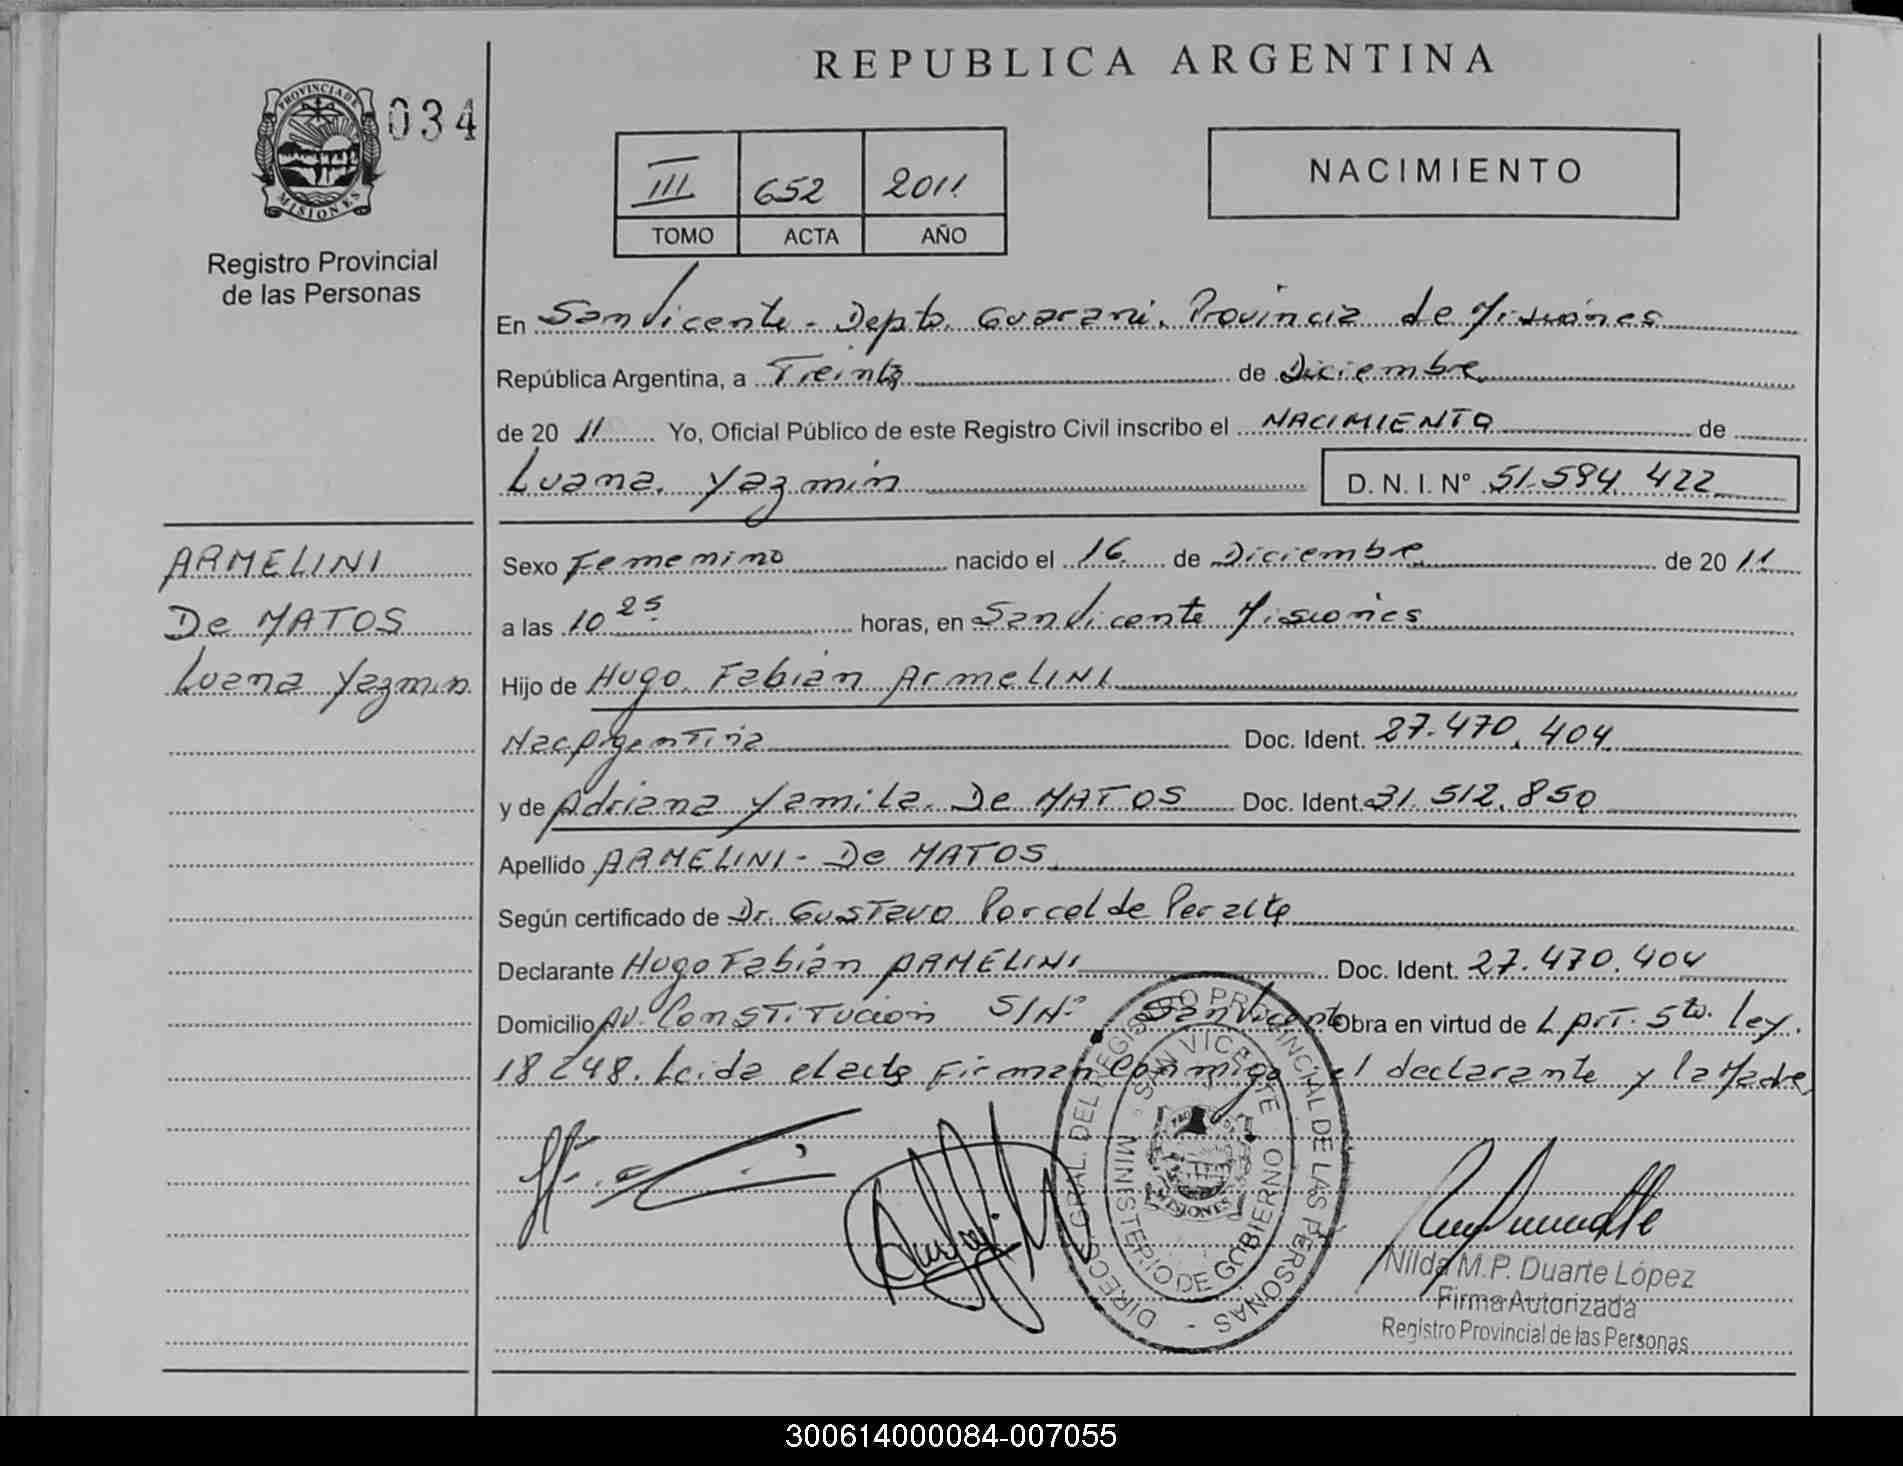 REPUBLICA ARGENTINA
PROVINCIA DE
MISIONES
034
Registro Provincial
de las Personas
III 652 2011
TOMO ACTA AÑO
NACIMIENTO
En San Vicente - Depto. Guarani. Provincia de Misiones
República Argentina, a Treinta de Diciembre
de 20 11 Yo, Oficial Público de este Registro Civil inscribo el NACIMIENTO de
Luana Yazmin D. N. I. N° 51.594.422
ARMELINI
De MATOS
Luana Yazmin
Sexo Femenino nacido el 16 de Diciembre de 20 11
a las 10 25 horas, en San Vicente Misiones
Hijo de Hugo Fabian ArmeLINI
Nac Argentina Doc. Ident. 27.470.404
y de Adriana Yamila De MATOS Doc. Ident. 31.512.850
Apellido ARMELINI - De MATOS
Según certificado de Dr. Gustavo Porcel de Peralta
Declarante Hugo Fabián ARMELINI Doc. Ident. 27.470.404
Domicilio Av. Constitucion S/Nº San Vicente Obra en virtud de L. Art. 5to. Ley.
18248. Leida el acta Firman Conmigo el declarante y la Madre
DIRECC. GRAL. DEL REGISTRO PROVINCIAL DE LAS PERSONAS -
SAN VICENTE
MINISTERIO DE GOBIERNO
MISIONES
Nilda M.P. Duarte López
Firma Autorizada
Registro Provincial de las Personas
300614000084-007055